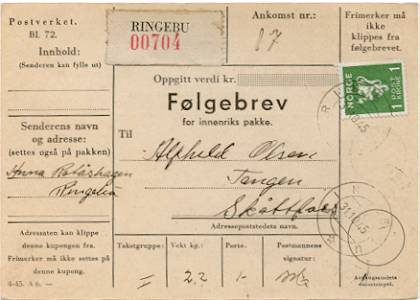 Postverket.
Bl. 72.
Innhold:
(Senderen kan fylle ut)
Senderens navn
og adresse:
(settes også på pakken)
Anna
Ringebu
Adressaten kan klippe
denne kupongen fra.
Frimerker må ikke settes på
denne kupong.
4-45. A 6.—
RINGEBU
00704
Ankomst nr.:
17
Frimerker må
ikke
klippes fra
følgebrevet.
Oppgitt verdi kr.
Følgebrev
for innenriks pakke.
Til
Alfhild Olsen
Tangen
Skåtfoss
Adressepoststedets navn.
NORGE
1 POST 1
KRONE
Takstgruppe:
Vekt kg.:
2,2
Porto.
1-
Postmannens
signatur:
Avgangsstedets
datostempel.